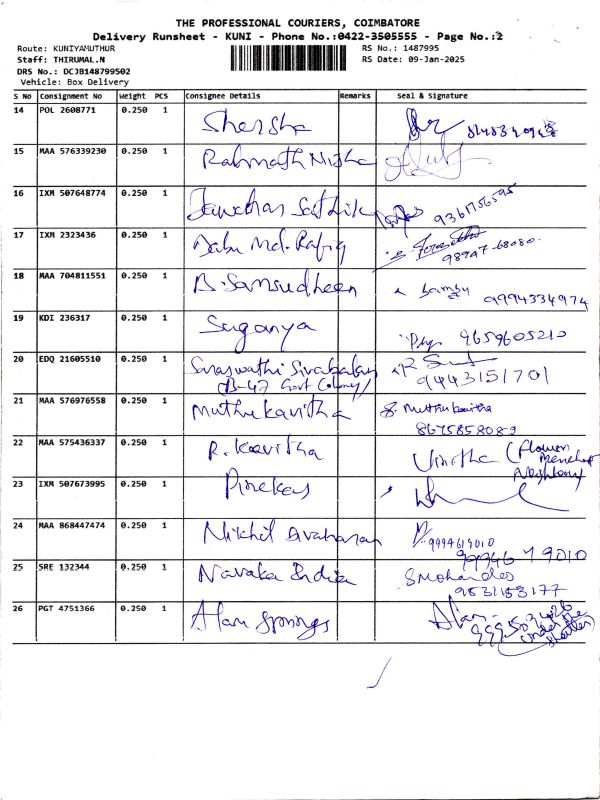 THE PROFESSIONAL COURIERS, COIMBATORE
Delivery Runsheet - KUNI - Phone No.:0422-3505555 - Page No.:2
Route: KUNIYAMUTHUR RS No.: 1487995
Staff: THIRUMAL.N RS Date: 09-Jan-2025
DRS No.: DCJB148799502
Vehicle: Box Delivery
S No Consignment No Weight PCS Consignee Details Remarks Seal & Signature
14 POL 2608771 0.250 1 Shersha
15 MAA 576339230 0.250 1 Rahmath Nisha
16 IXM 507648774 0.250 1 Jawahar Sathik 9361756595
17 IXM 2323436 0.250 1 Babu Md. Rafiq 98947-68080.
18 MAA 704811551 0.250 1 B. Samsudheen 9994334974
19 KDI 236317 0.250 1 Suganya 9659605210
20 EDQ 21605510 0.250 1 Saraswathi Sivabalan 9443151701
(B-47 Govt Colony)
21 MAA 576976558 0.250 1 Muthukavitha Muthukavitha
8675858089
22 MAA 575436337 0.250 1 R. Kavitha Vinitha (Flower
Neighbour)
23 IXM 507673995 0.250 1
24 MAA 868447474 0.250 1 Nikhil 9994619010
9994679010
25 SRE 132344 0.250 1 Navaka India S Mohandas
9831183177
26 PGT 4751366 0.250 1 Alan Springs Alan
under the
shutter